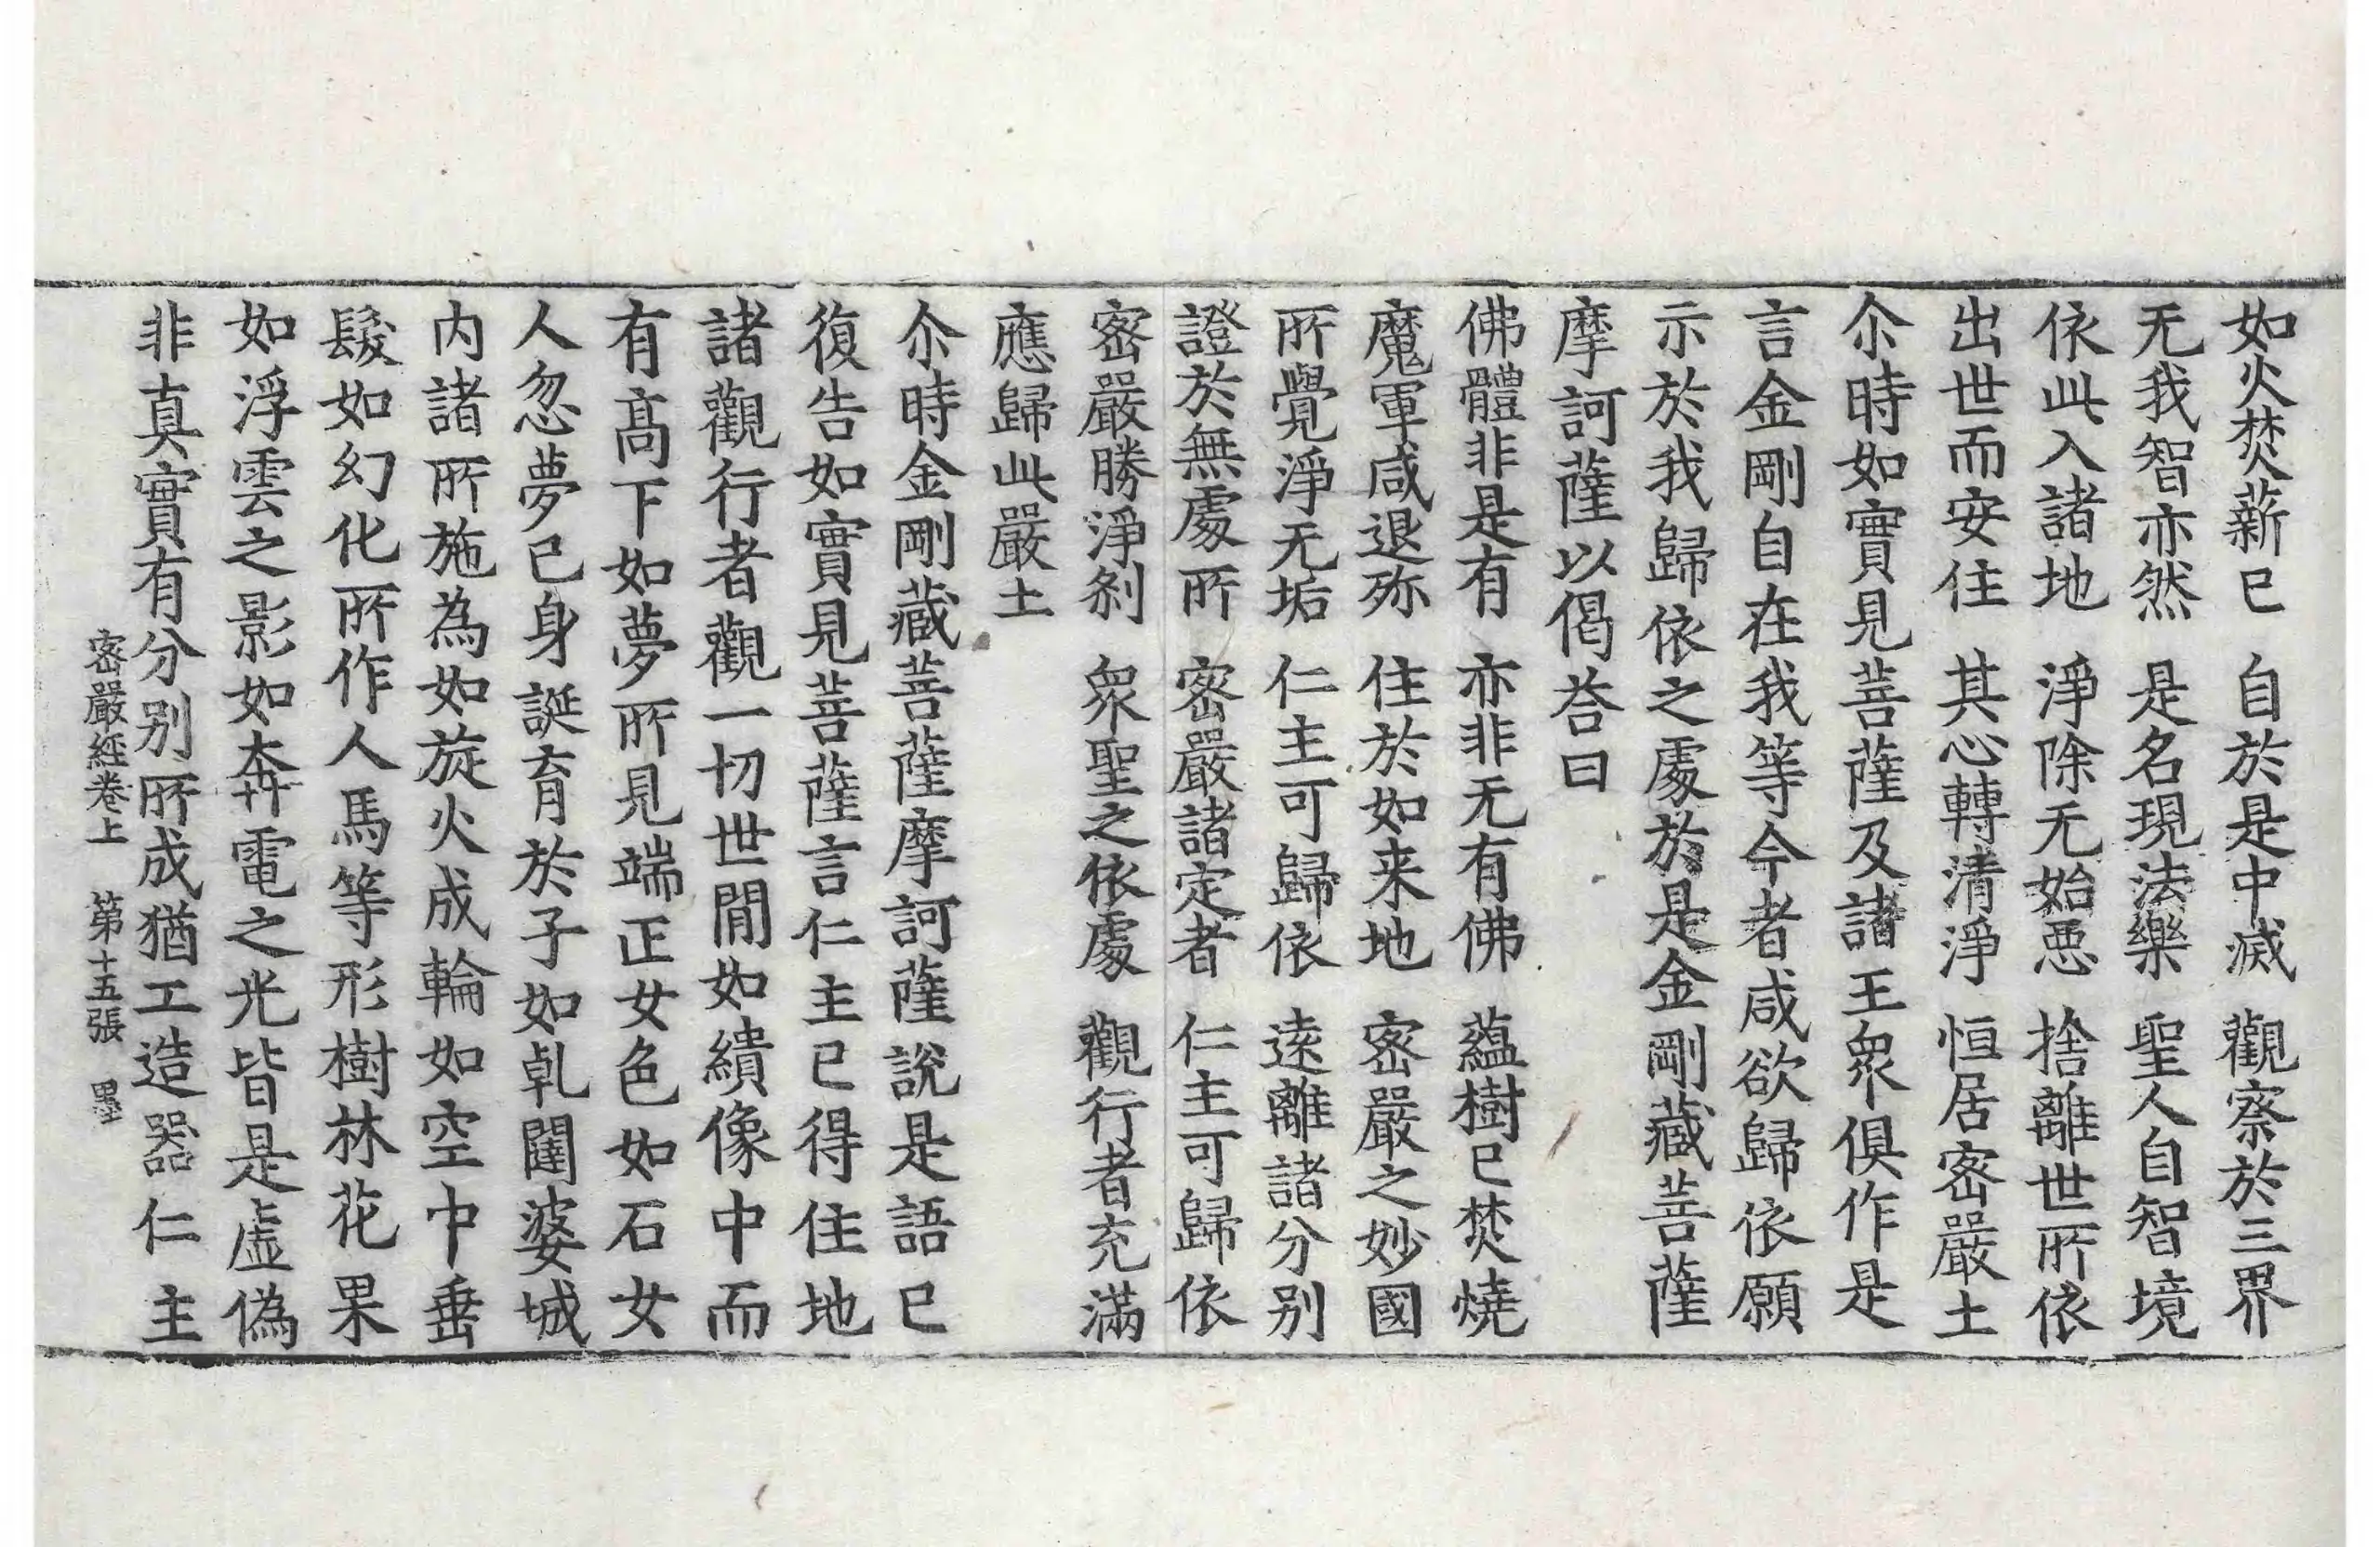 如火焚薪已　自於是中滅　觀察於三界
无我智亦然　是名現法樂　聖人自智境
依此入諸地　淨除无始惡　捨離世所依
出世而安住　其心轉清淨　恒居密嚴土
尒時如實見菩薩及諸王衆俱作是
言金剛自在我等今者咸欲歸依願
示於我歸依之處於是金剛藏菩薩
摩訶薩以偈荅曰
佛體非是有　亦非无有佛　蘊樹已焚燒
魔軍咸退殄　住於如来地　密嚴之妙國
所覺淨无垢　仁主可歸依　遠離諸分别
證於無處所　密嚴諸定者　仁主可歸依
密嚴勝淨刹　衆聖之依處　觀行者充滿
應歸此嚴土
尒時金剛藏菩薩摩訶薩說是語已
復告如實見菩薩言仁主已得住地
諸觀行者觀一切世閒如繢像中而
有髙下如夢所見端正女色如石女
人忽夢已身誕育於子如乹闥婆城
内諸所施為如旋火成輪如空中垂
髮如幻化所作人馬等形樹林花果
如浮雲之影如奔電之光皆是虛偽
非真實有分别所成猶工造器仁主
密嚴經卷上　第十五張　墨